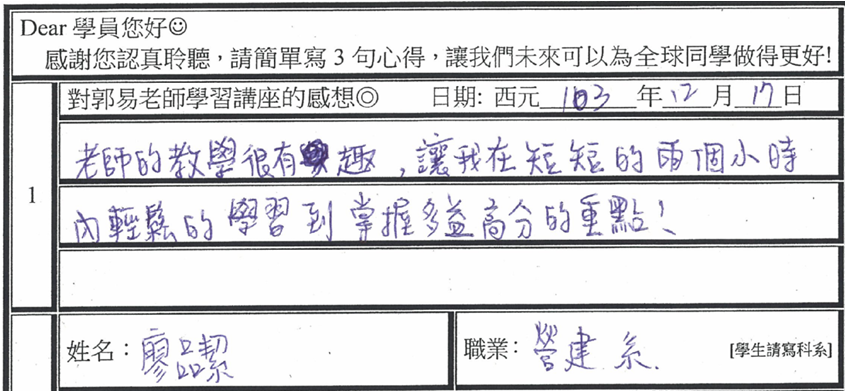 Dear 學員您好☺
感謝您認真聆聽，請簡單寫 3 句心得，讓我們未來可以為全球同學做得更好!
對郭易老師學習講座的感想◎ 日期: 西元 103 年 12 月 17 日
老師的教學很有趣，讓我在短短的兩個小時
1
內輕鬆的學習到掌握多益高分的重點！
姓名：廖品潔 職業：營建系. [學生請寫科系]